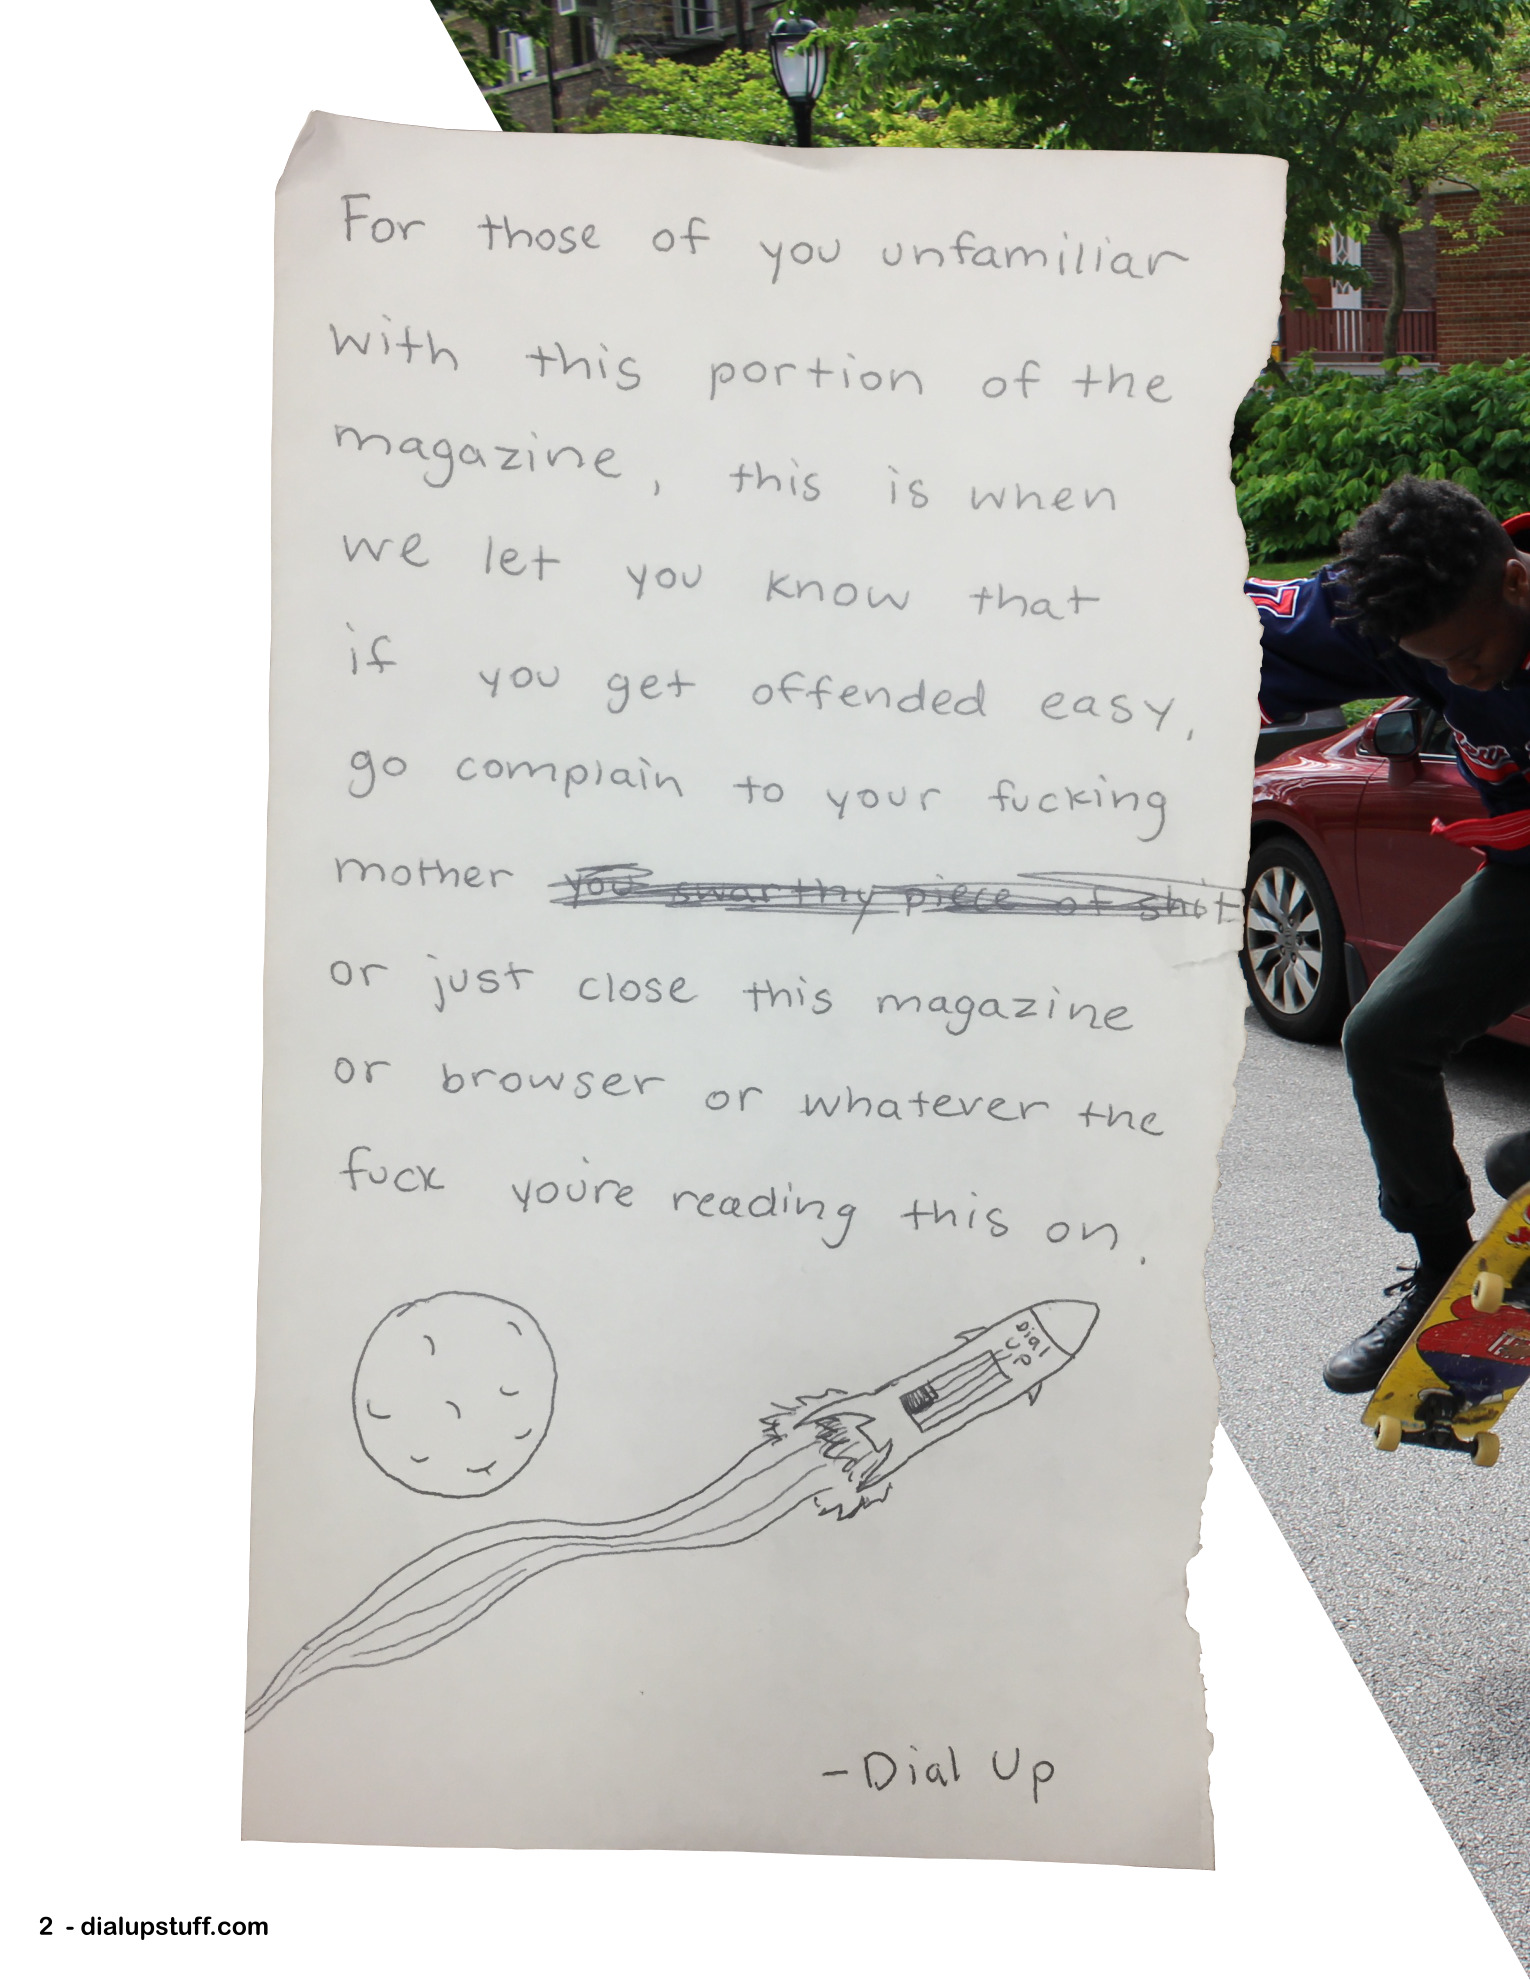 For those of you unfamiliar
with this portion of the
magazine, this is when
we let you know that
if you get offended easy,
go complain to your fucking
mother you swarthy piece of shit
or just close this magazine
or browser or whatever the
fuck you're reading this on.
Dial
Up
-Dial Up
2 - dialupstuff.com